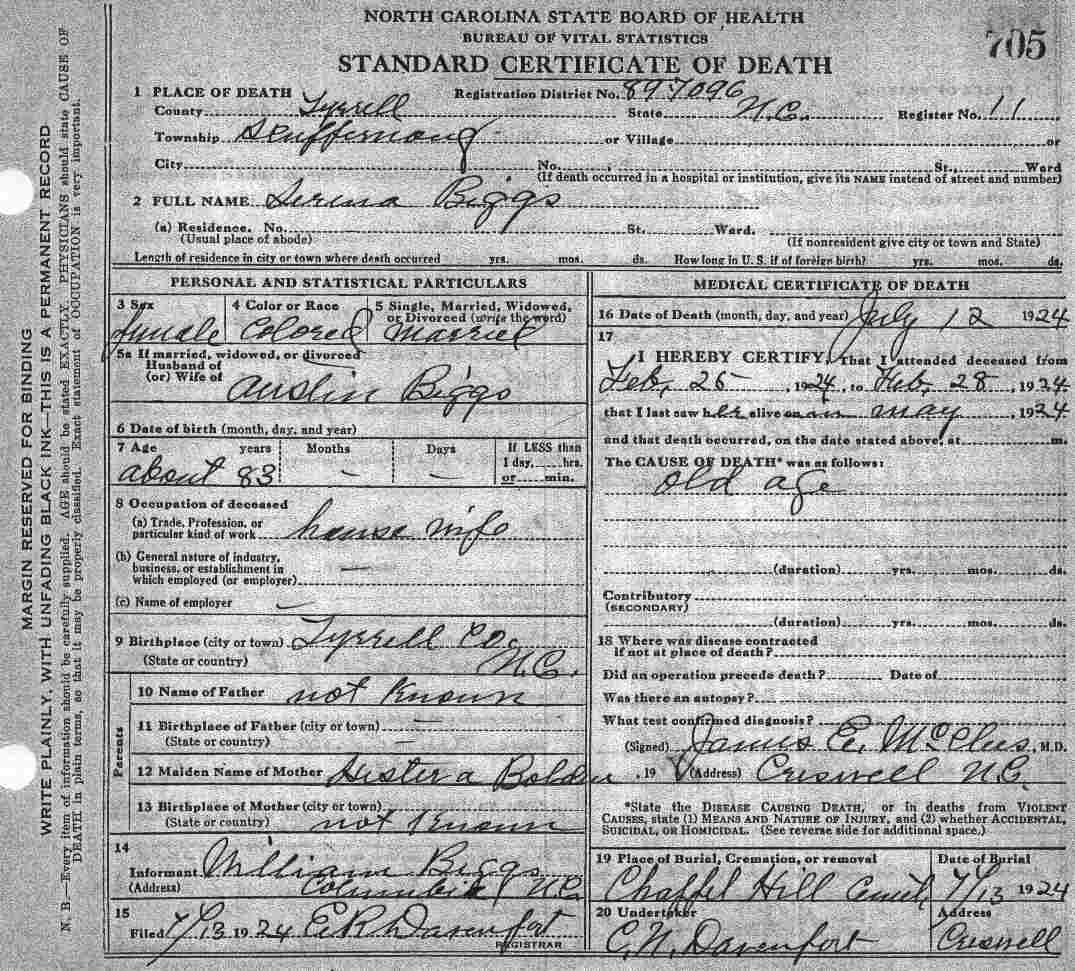 NORTH CAROLINA STATE BOARD OF HEALTH
BUREAU OF VITAL STATISTICS
705
STANDARD CERTIFICATE OF DEATH
1 PLACE OF DEATH Registration District No. 89-7096
County Tyrrell State N.C. Register No. 11
Township Scuppernong or Village or
City No. St., Ward
(If death occurred in a hospital or institution, give its NAME instead of street and number)
2 FULL NAME Serena Biggs
(a) Residence. No. St. Ward.
(Usual place of abode) (If nonresident give city or town and State)
Length of residence in city or town where death occurred yrs. mos. ds. How long in U. S. if of foreign birth? yrs. mos. ds.
PERSONAL AND STATISTICAL PARTICULARS
3 Sex 4 Color or Race 5 Single, Married, Widowed,
or Divorced (write the word)
female Colored Married
5a If married, widowed, or divorced
Husband of
(or) Wife of
Austin Biggs
6 Date of birth (month, day, and year)
7 Age years Months Days If LESS than
1 day, hrs.
about 83 — — or min.
8 Occupation of deceased
(a) Trade, Profession, or
particular kind of work house wife
(b) General nature of industry,
business, or establishment in
which employed (or employer) —
(c) Name of employer —
9 Birthplace (city or town) Tyrrell Co.
(State or country) N.C.
Parents
10 Name of Father not Known
11 Birthplace of Father (city or town) —
(State or country) —
12 Maiden Name of Mother Hester a
13 Birthplace of Mother (city or town)
(State or country) not Known
14
Informant William Biggs
(Address) Columbia N.C.
15
Filed 7/13 1924 E.R. Davenport
REGISTRAR
MEDICAL CERTIFICATE OF DEATH
16 Date of Death (month, day, and year) July 12 1924
17
I HEREBY CERTIFY, That I attended deceased from
Feb, 25 , 1924, to Feb, 28 , 1924
that I last saw her alive on in may , 1924
and that death occurred, on the date stated above, at m.
The CAUSE OF DEATH* was as follows:
old age
(duration) yrs. mos. ds.
Contributory
(SECONDARY)
(duration) yrs. mos. ds.
18 Where was disease contracted
if not at place of death?
Did an operation precede death? Date of
Was there an autopsy?
What test confirmed diagnosis?
(Signed) James E. , M.D.
, 19 (Address) Creswell N.C.
*State the DISEASE CAUSING DEATH, or in deaths from VIOLENT
CAUSES, state (1) MEANS AND NATURE OF INJURY, and (2) whether ACCIDENTAL,
SUICIDAL, OR HOMICIDAL. (See reverse side for additional space.)
19 Place of Burial, Cremation, or removal Date of Burial
Chappel Hill 7/13 1924
20 Undertaker Address
C.N. Davenport Creswell
MARGIN RESERVED FOR BINDING
WRITE PLAINLY, WITH UNFADING BLACK INK—THIS IS A PERMANENT RECORD
N. B.—Every item of information should be carefully supplied. AGE should be stated EXACTLY. PHYSICIANS should state CAUSE OF
DEATH in plain terms, so that it may be properly classified. Exact statement of OCCUPATION is very important.